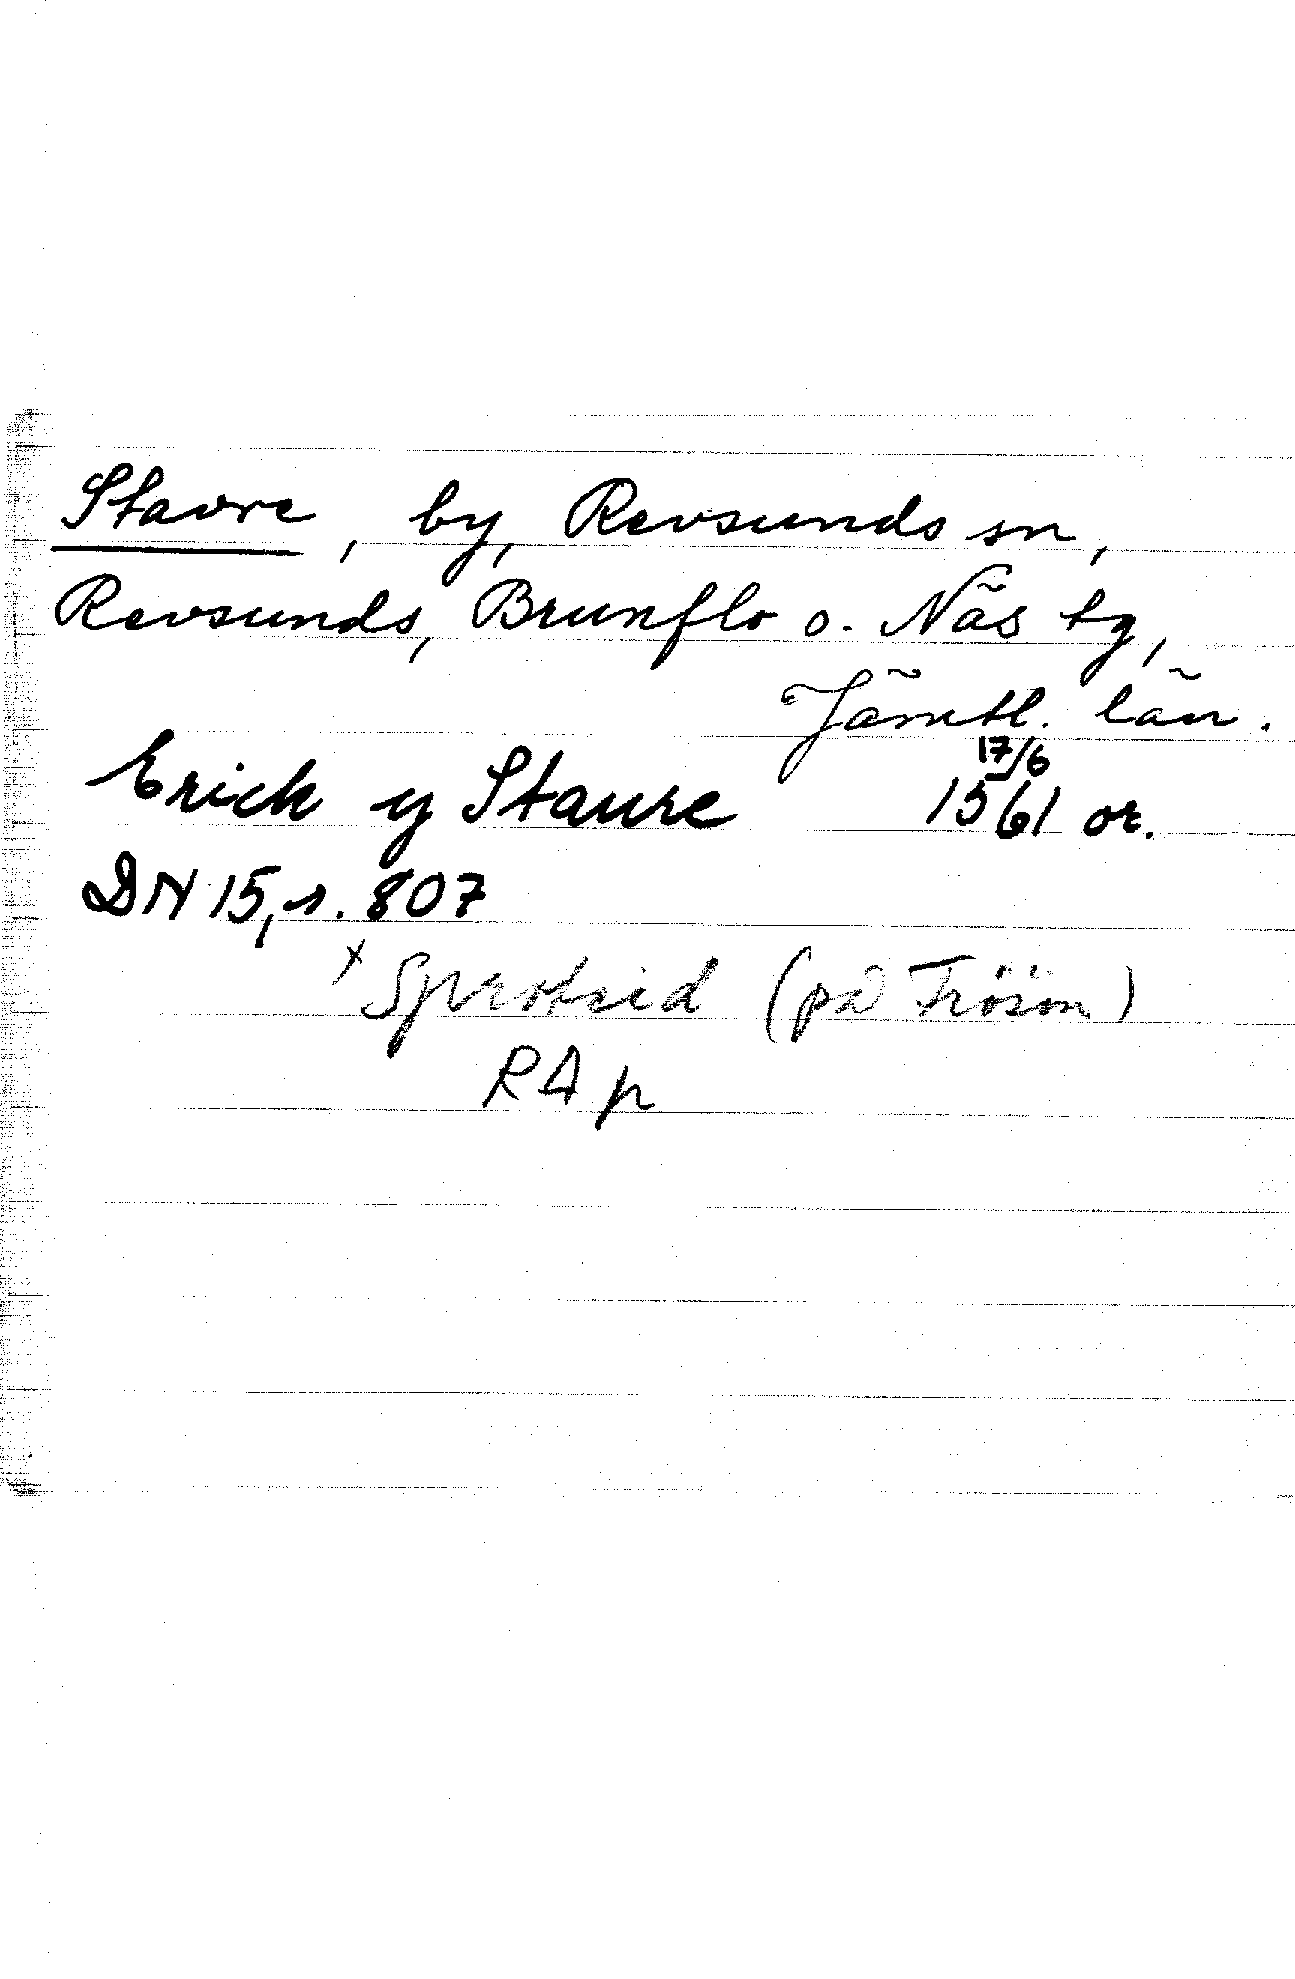 Stavre, by, Revsunds sn,
Revsunds, Brunflo o. Näs tg,
Jämtl. län.
Erick y Staure 17/6 1561 or.
DN 15, s. 807
x Sproteid (på Frösön)
RA p